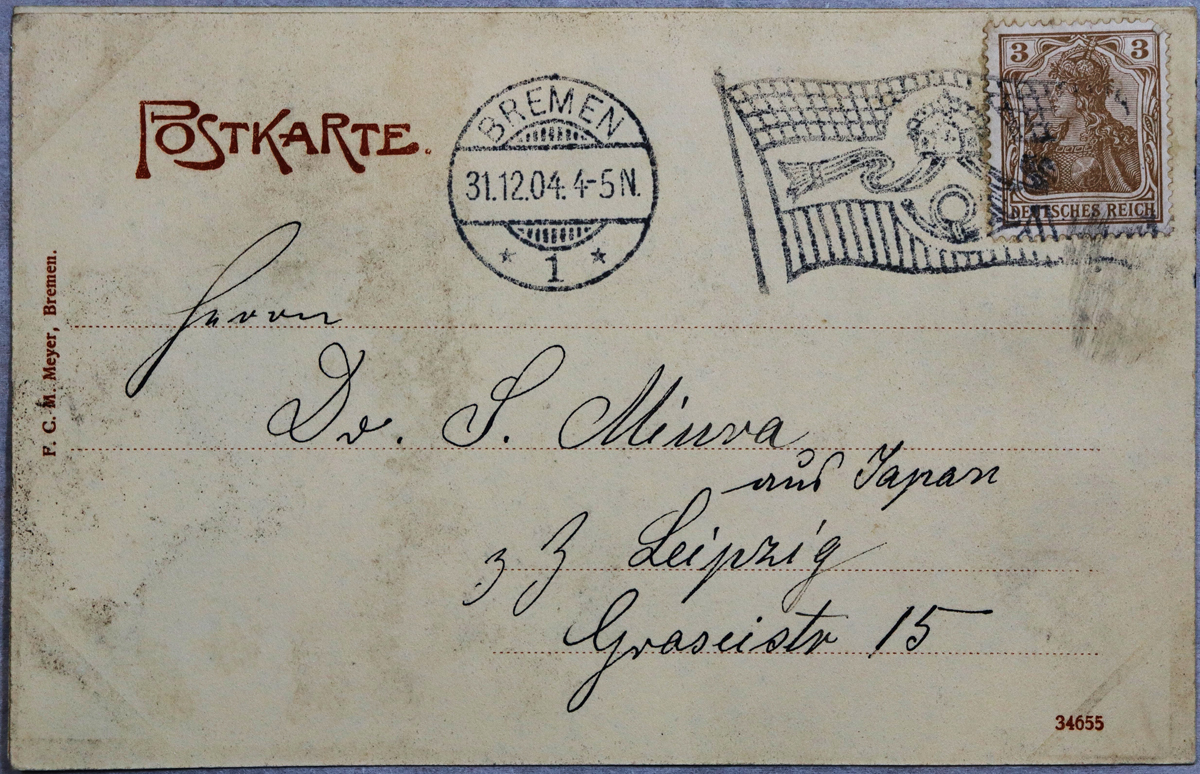 POSTKARTE.
BREMEN
31.12.04. 4-5 N.
* 1 *
3 3
DEUTSCHES REICH
F. C. M. Meyer, Bremen.
Herrn
Dr. S. Miura
aus Japan
z Z Leipzig
Grassistr 15
34655